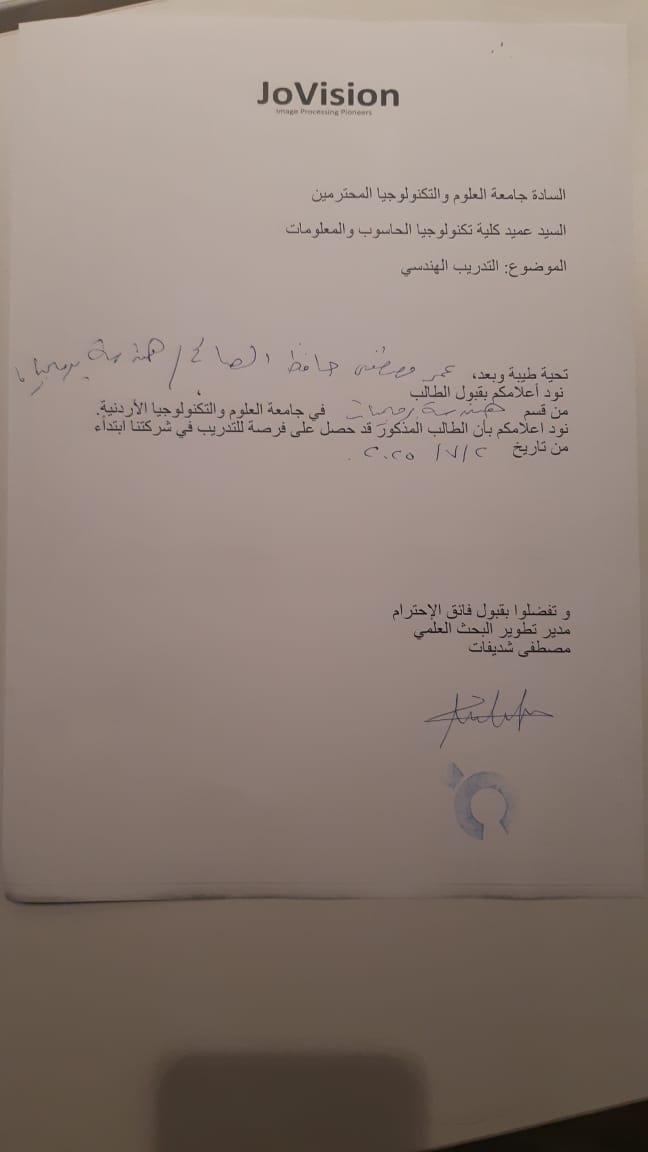 JoVision
Image Processing Pioneers
السادة جامعة العلوم والتكنولوجيا المحترمين
السيد عميد كلية تكنولوجيا الحاسوب والمعلومات
الموضوع: التدريب الهندسي
تحية طيبة وبعد، عمر مصطفى حافظ الصالح / هندسة برمجيات
نود أعلامكم بقبول الطالب
من قسم هندسة برمجيات في جامعة العلوم والتكنولوجيا الأردنية.
نود اعلامكم بأن الطالب المذكور قد حصل على فرصة للتدريب في شركتنا ابتداء
من تاريخ ٢ / ٧ / ٢٠٢٥ .
و تفضلوا بقبول فائق الإحترام
مدير تطوير البحث العلمي
مصطفى شديفات